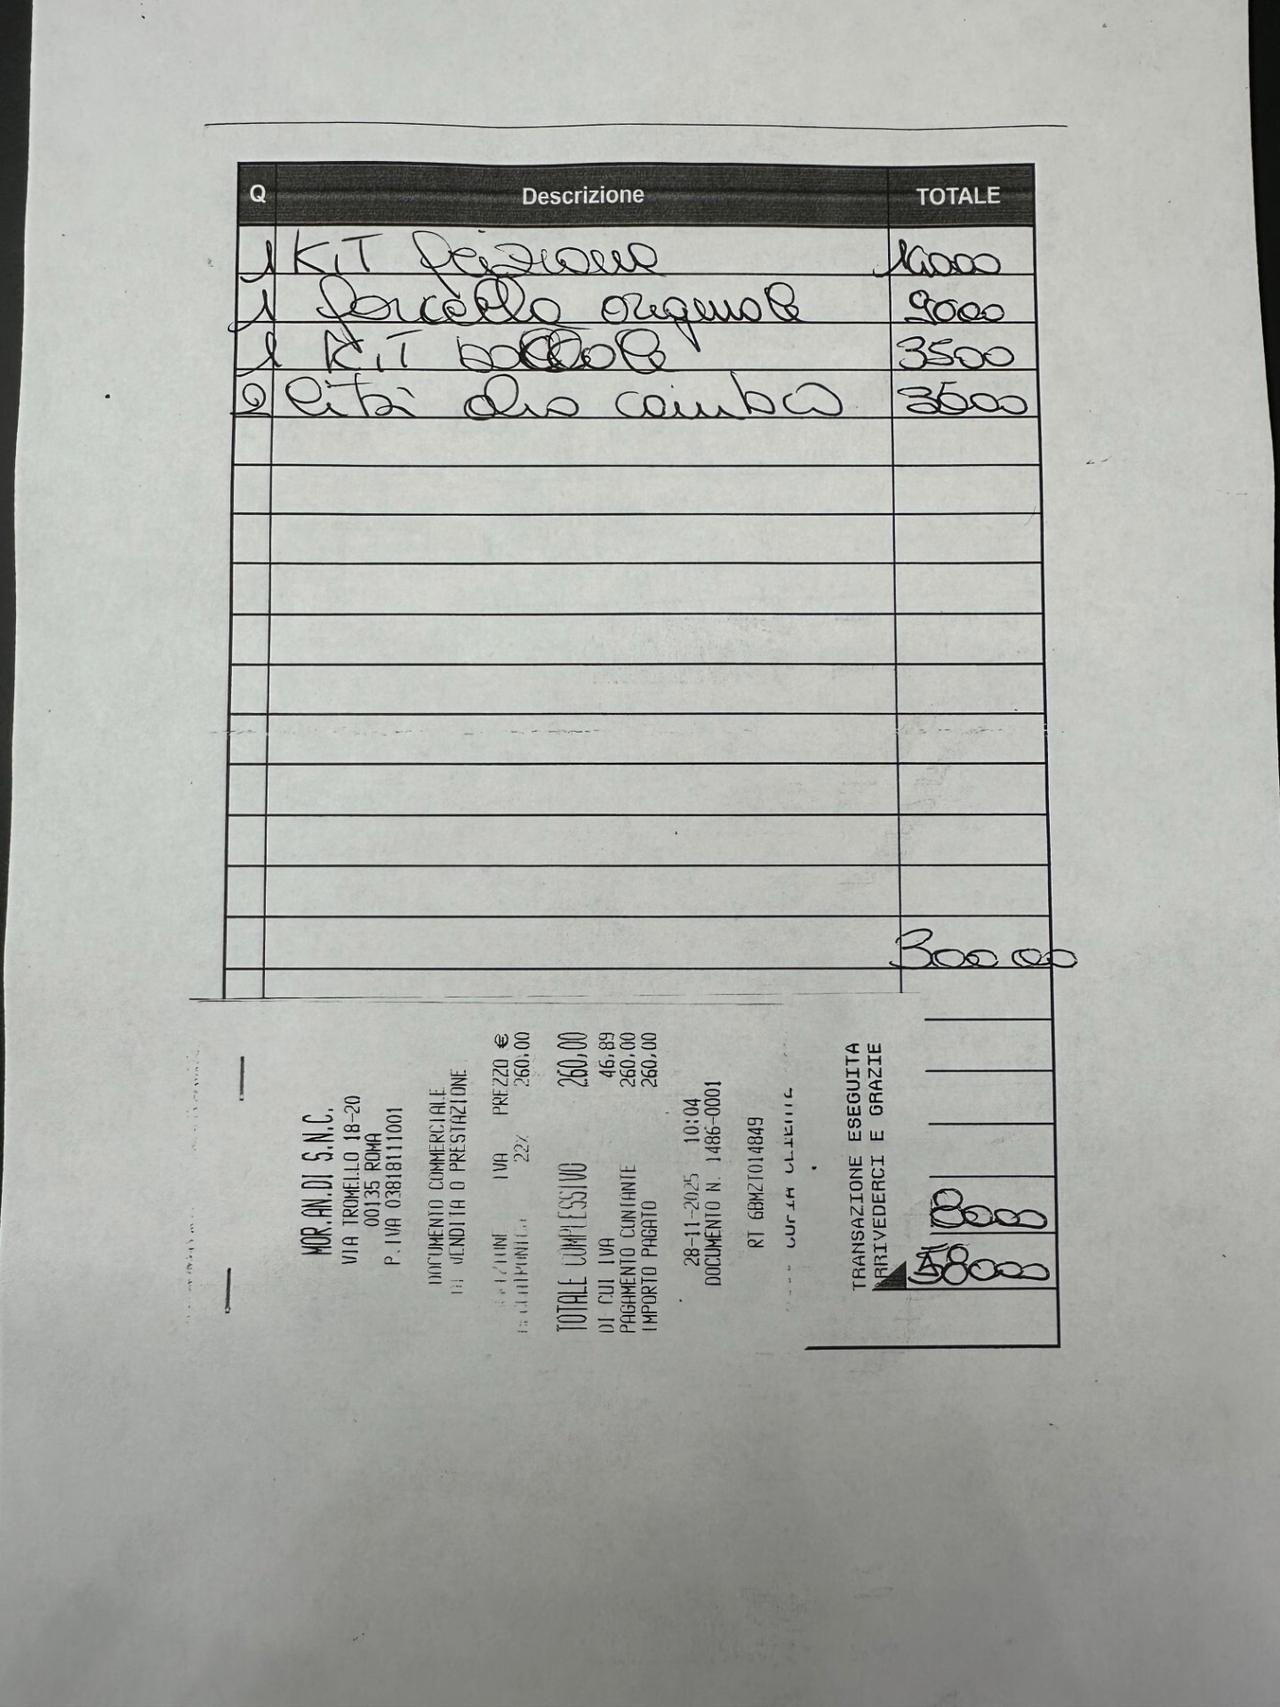 Q Descrizione TOTALE
1 KIT frizione 14000
1 forcella originale 9000
1 KIT boccole 3500
2 litri olio cambio 3500
300 00
8000
58000
MOR.AN.DI S.N.C.
VIA TROMELLO 18-20
00135 ROMA
P.IVA 03818111001
DOCUMENTO COMMERCIALE
DI VENDITA O PRESTAZIONE
IVA PREZZO €
22% 260,00
TOTALE COMPLESSIVO 260,00
DI CUI IVA 46,89
PAGAMENTO CONTANTE 260,00
IMPORTO PAGATO 260,00
28-11-2025 10:04
DOCUMENTO N. 1486-0001
RT 6BMZT014849
COPIA CLIENTE
TRANSAZIONE ESEGUITA
ARRIVEDERCI E GRAZIE